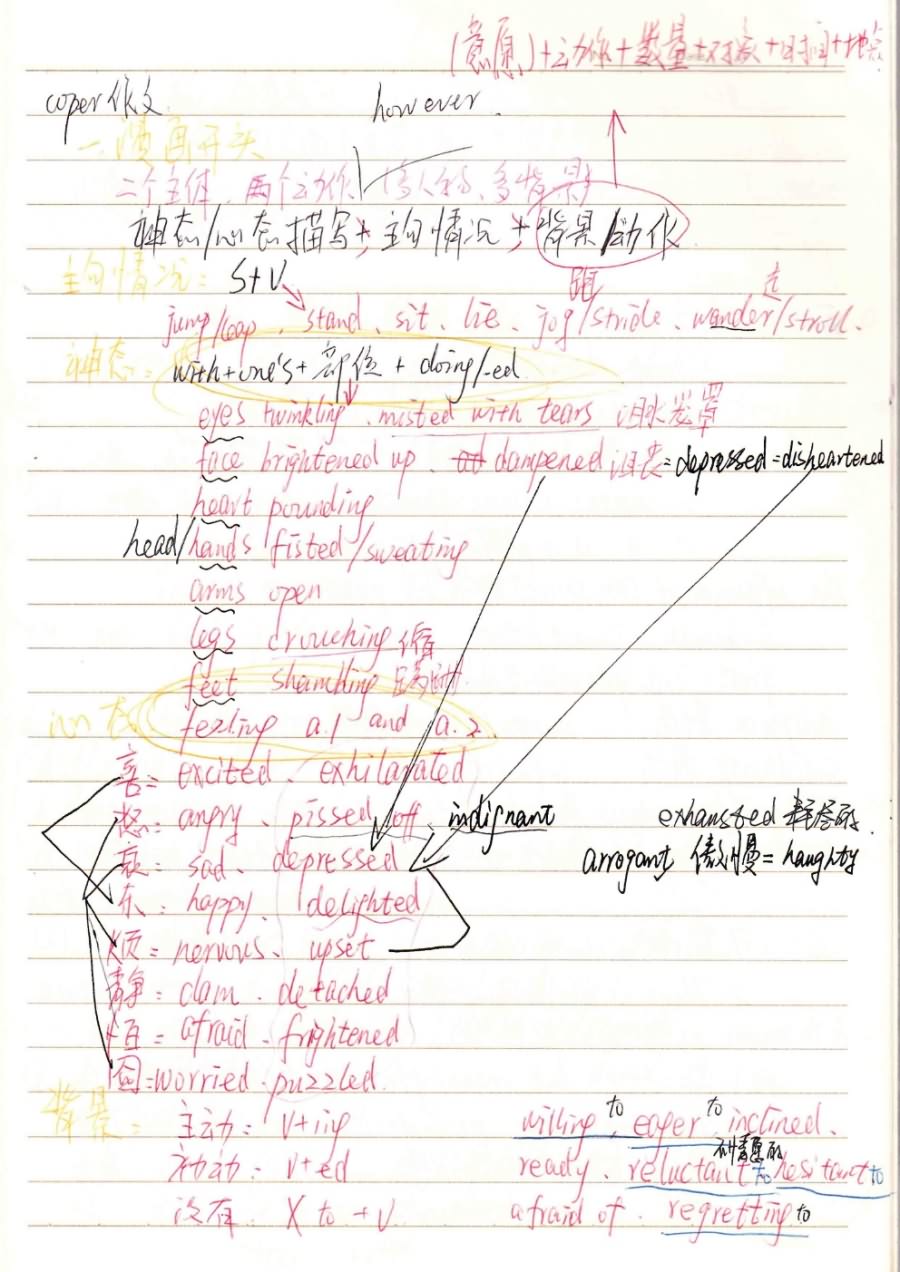 (意愿)+动作+数量+对象+时间+地点
coper作文 however.
一.漫画开头
二个主体、两个动作、(多人物、多背景)
神态/心态描写+主句情况+背景/动作
主句情况: S+V
跑 走
jump/leap、stand、sit、lie、jog/stride、wander/stroll.
神态: with+one's+部位+doing/-ed
eyes twinkling、misted with tears 泪水笼罩
face brightened up、dampened 沮丧=depressed=disheartened
heart pounding
head/hands fisted/sweating
arms open
legs crouching 缩
feet shambling 蹒跚
心态 feeling a.1 and a.2
喜= excited、exhilarated
怒: angry、pissed off、indignant exhansted 精疲力尽的.
哀: sad、depressed arrogant 傲慢=haughty
乐: happy、delighted
烦= nervous、upset
静= clam、detached
怕= afraid、frightened
囧=worried、puzzled
背景: 主动: V+ing willing to、eager to、inclined、
不情愿的
被动: V+ed ready、reluctant to hesitant to
没有: X to +V afraid of、regretting to